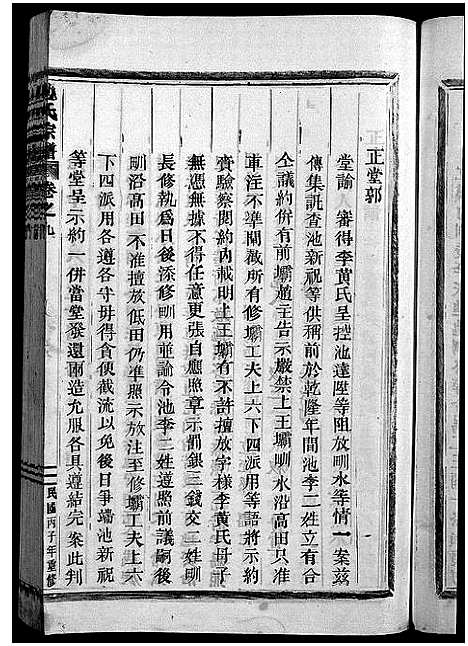 正堂郭
堂諭　審得李黃氏呈控池達陞等阻放圳水等情一案茲
傳集訊查池新祝等供稱前於乾隆年間池李二姓立有合
仝議約併有前壩趙主告示嚴禁上王壩圳水沿高田只准
車注不準開缺所有修壩工夫上六下四派用等語將示約
賫驗察閱約內載明上王壩有不許擅放字樣李黃氏母子
無憑無據不得任意更張自應照章示罰銀三錢交二姓圳
長修執爲日後添修圳用並諭令池李二姓遵照前議嗣後
圳沿高田不准擅放低田仍准照示放注至修壩工夫上六
下四派用各遵各守毋得貪便截流以免後日爭端池新祝
等堂呈示約一併當堂發還兩造允服各具遵結完案此判
氏宗譜
卷之九
民國丙子年重修